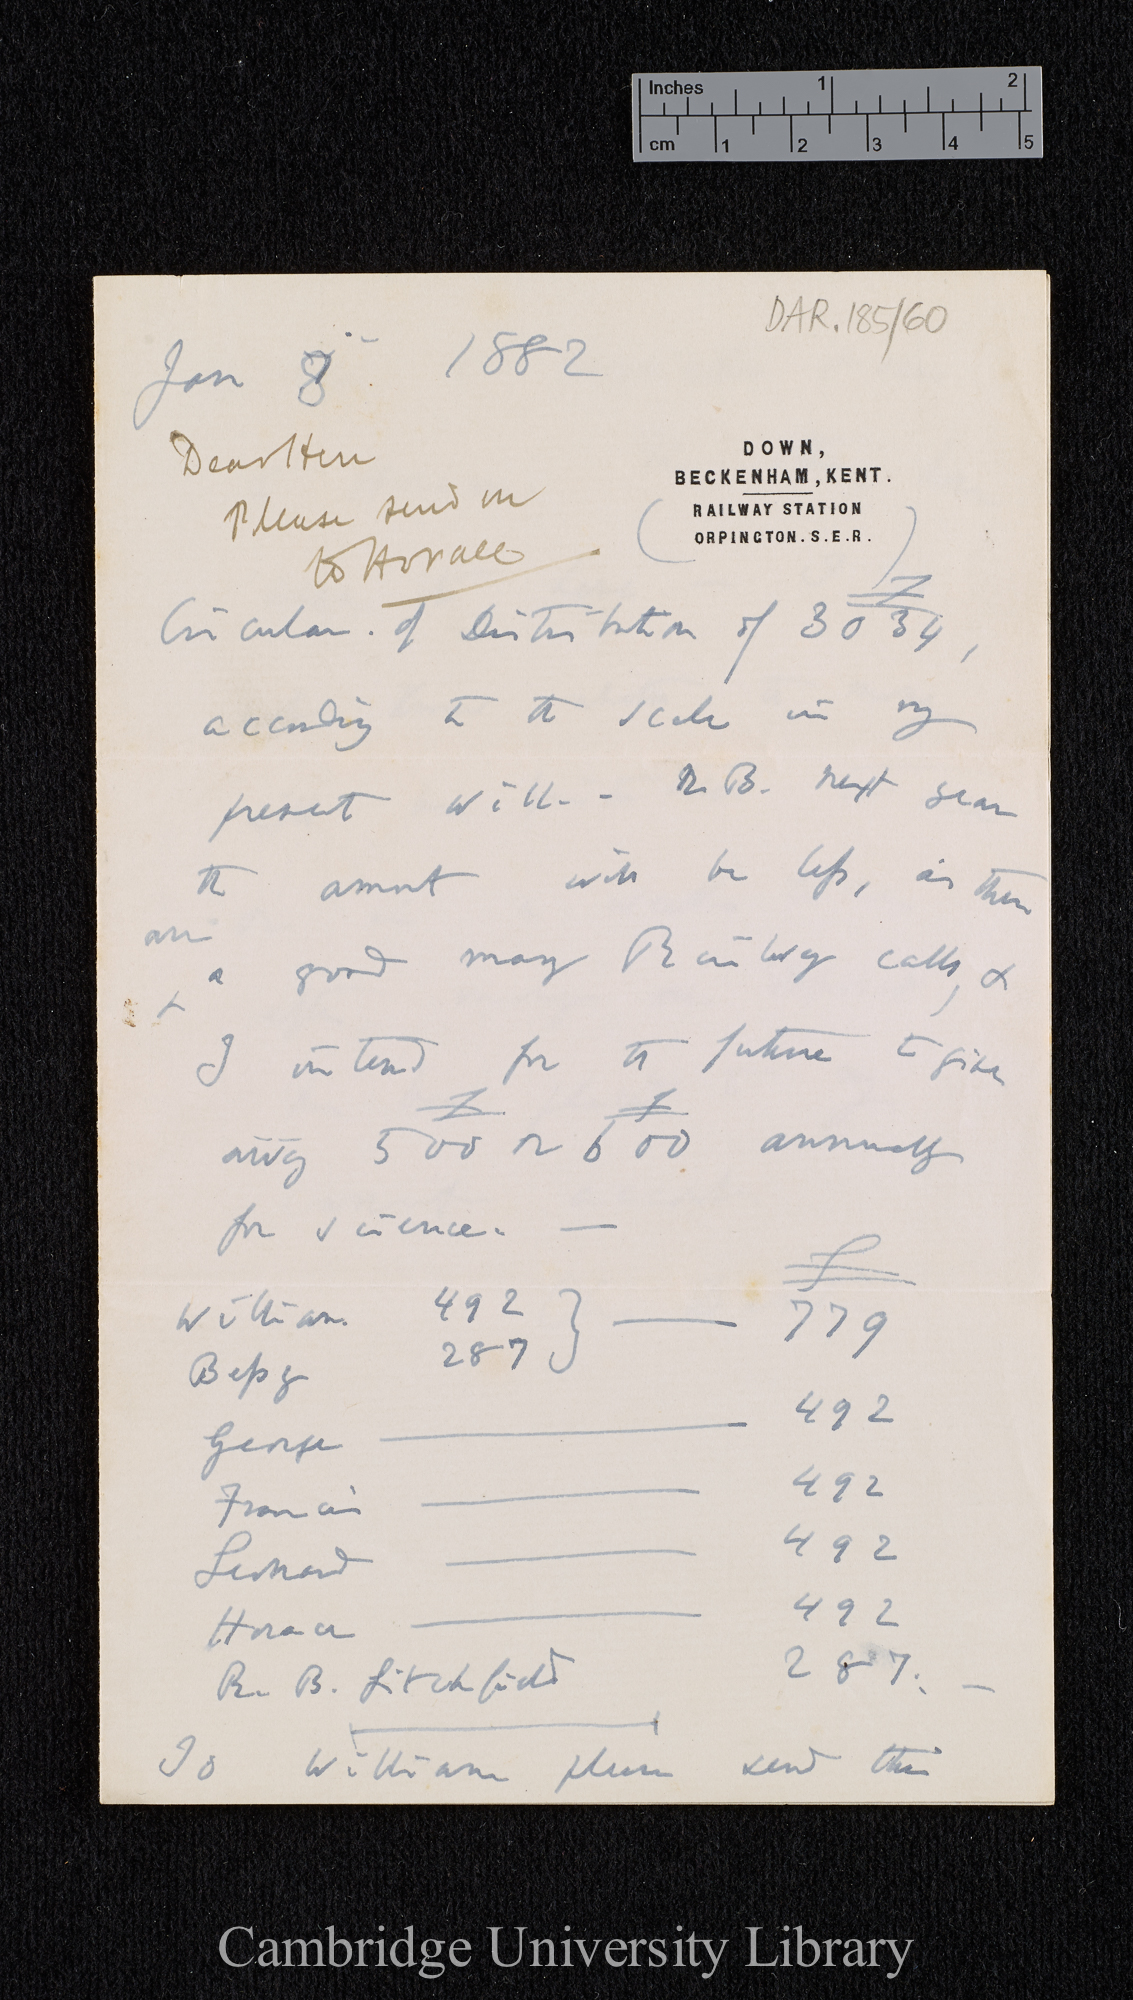 Inches 1 2
cm 1 2 3 4 5
DAR.185/60
Jan 8th 1882
Dear Hen
Please send on
to Horace
DOWN,
BECKENHAM, KENT.
(RAILWAY STATION
ORPINGTON. S.E.R.)
Circular of Distribution of £3034,
according to the scale in my
present will.- N.B. next year
the amount will be less, as there
are
a good many Railway calls, &
+
I intend for the future to give
away £500 or £600 annually
for science. —
£
William 492 } — 779
Bessy 287
George — 492
Francis — 492
Leonard — 492
Horace — 492
R. B. Litchfield 287. —
To William please send this
Cambridge University Library